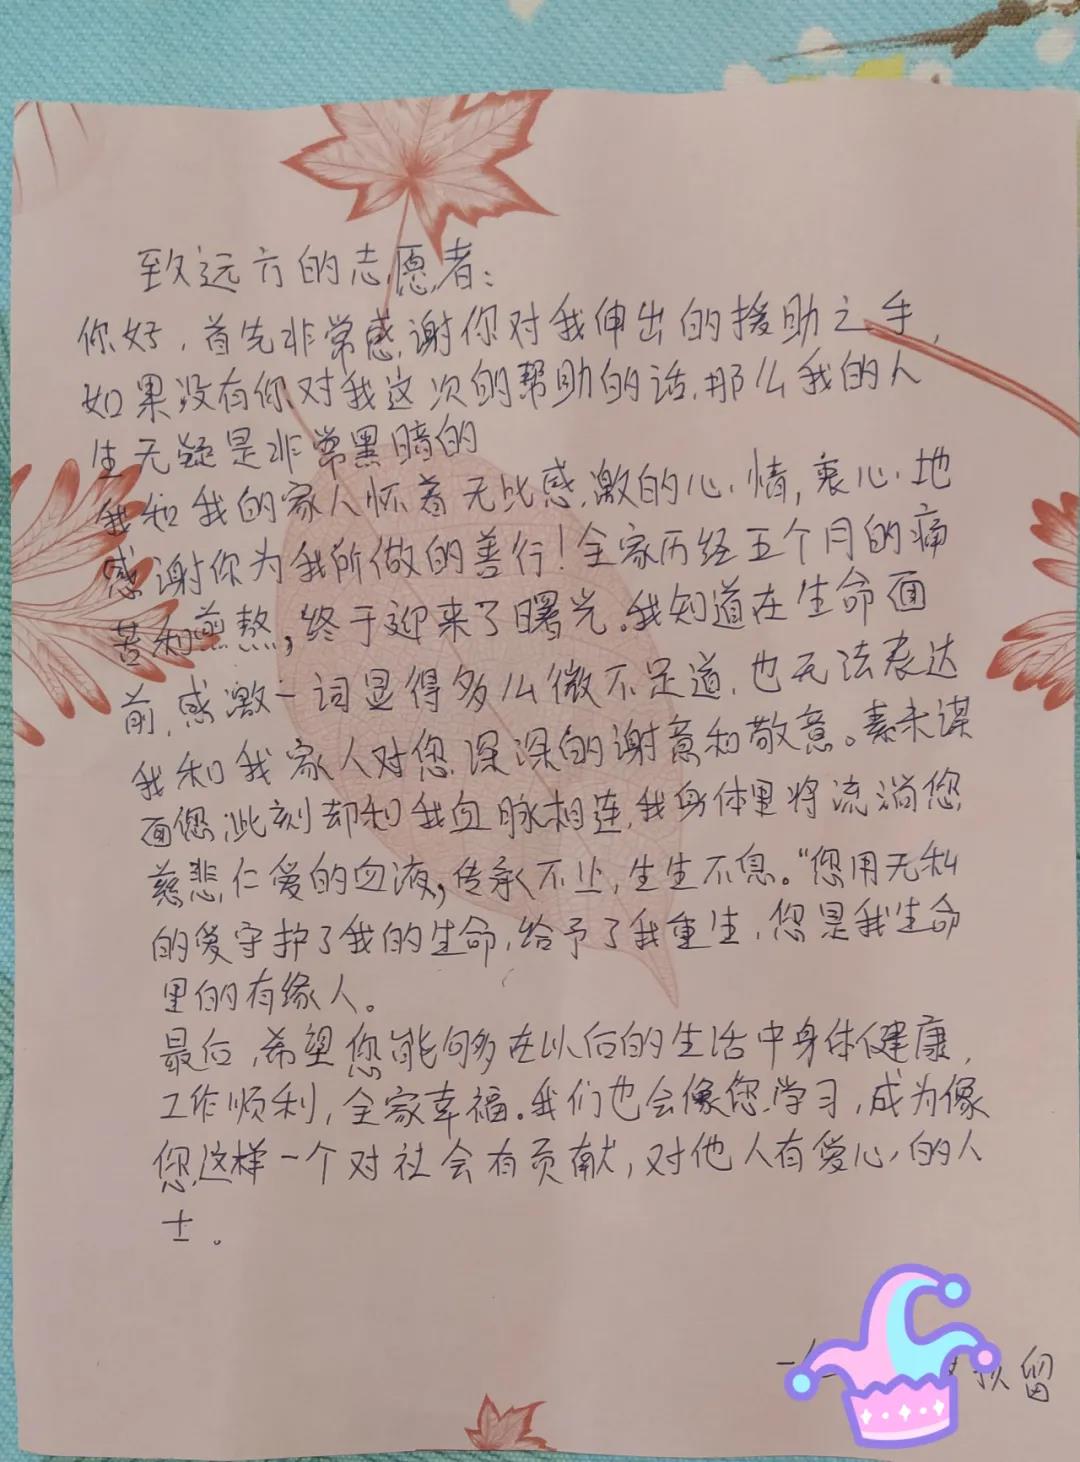 致远方的志愿者：
你好，首先非常感谢你对我伸出的援助之手，
如果没有你对我这次的帮助的话，那么我的人
生无疑是非常黑暗的
我和我的家人怀着无比感激的心情，衷心地
感谢你为我所做的善行！全家历经五个月的痛
苦和煎熬，终于迎来了曙光。我知道在生命面
前，感激一词显得多么微不足道，也无法表达
我和我家人对您深深的谢意和敬意。素未谋
面您，此刻却和我血脉相连，我身体里将流淌您
慈悲仁爱的血液，传承不止，生生不息。“您用无私
的爱守护了我的生命，给予了我重生，您是我生命
里的有缘人。
最后，希望您能够在以后的生活中身体健康，
工作顺利，全家幸福。我们也会像您学习，成为像
您这样一个对社会有贡献，对他人有爱心的人
士。
留